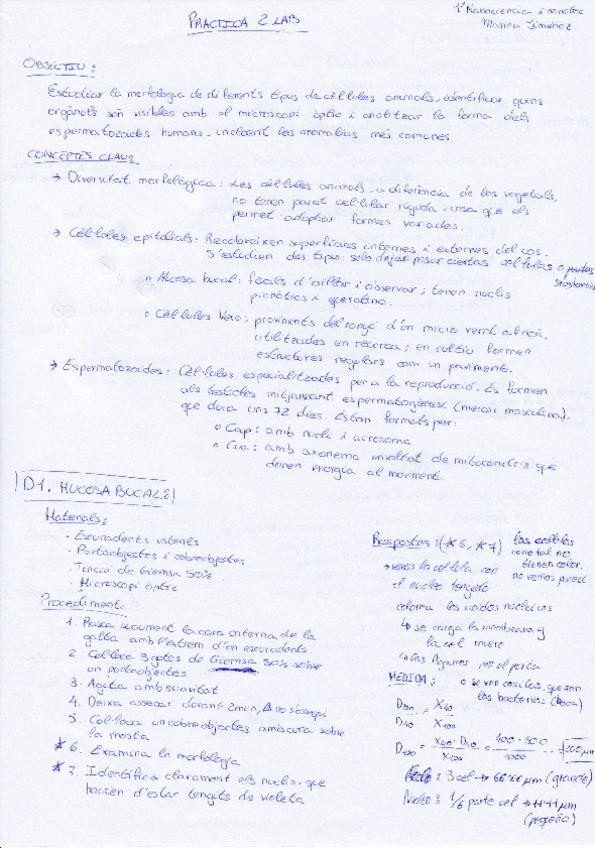 PRACTICA 2 LAB
1º Nanociencia i nanotec
Marina Jimenez
OBJECTIU:
Estudiar la morfologia de diferents tipus de cèl·lules animals, identificar quins
orgànols són visibles amb el microscopi òptic i analitzar la forma dels
espermatozoides humans, incloent les anomalies més comunes.
CONCEPTES CLAUS
→ Diversitat morfològica: Les cèl·lules animals, a diferència de les vegetals,
no tenen paret cel·lular rígida, cosa que els
permet adoptar formes variades.
→ Cèl·lules epitelials: Recobreixen superfícies internes i externes del cos.
S'estudien dos tipus: solo dejan pasar ciertas células o partes
o Mucosa bucal: fàcils d'aïllar i observar; tenen nuclis
picnòtics i
o Cèl·lules Vero: provinents del ronyó d'un micro verd africà,
utilitzades en recerca; en cultiu formen
estructures regulars com un paviment.
→ Espermatozoides: Cèl·lules especialitzades per a la reproducció. Es formen
als testicles mitjançant espermatogènesi (meiosi masculina),
que dura uns 72 dies. Estan formats per:
o Cap: amb nucli i acrosoma
o Cua: amb axonema envoltat de mitocondris que
donen energia al moviment.
D1. MUCOSA BUCAL
Materials:
· Escuradents
· Portaobjectes i cobreobjectes
· Tinció de Giemsa 50%
· Microscopi òptic
Procediment:
1. Rasca suaument la cara interna de la
galta amb l'extrem d'un escuradents.
2. Col·loca 3 gotes de Giemsa 50% sobre
un portaobjectes
3. Agita amb suavitat
4. Deixa assecar durant 2min,
5. Col·loca un cobreobjectes amb cura sobre
la mostra
* 6. Examina la morfologia
* 7. Identifica clarament els nuclis, que
haurien d'estar tenyits de violeta
Respostes: (*6, *7)
las células
como tal no
tienen color,
no verías
→ verás la célula con
el nucleo
colorna los ácidos nucleicos
↳ se carga la membrana y
la cel muere
MEDIDA:
o se ven cositas, que son
las bacterias (boca)
D100 / D40 = X40 / X100
D100 = X40 · D40 / X100 = 400 · 500 / 1000 = 200 μm
3 cel → 66'66 μm (grande)
Nucleo: 1/6 parte cel → 11'11 μm
(pequeño)